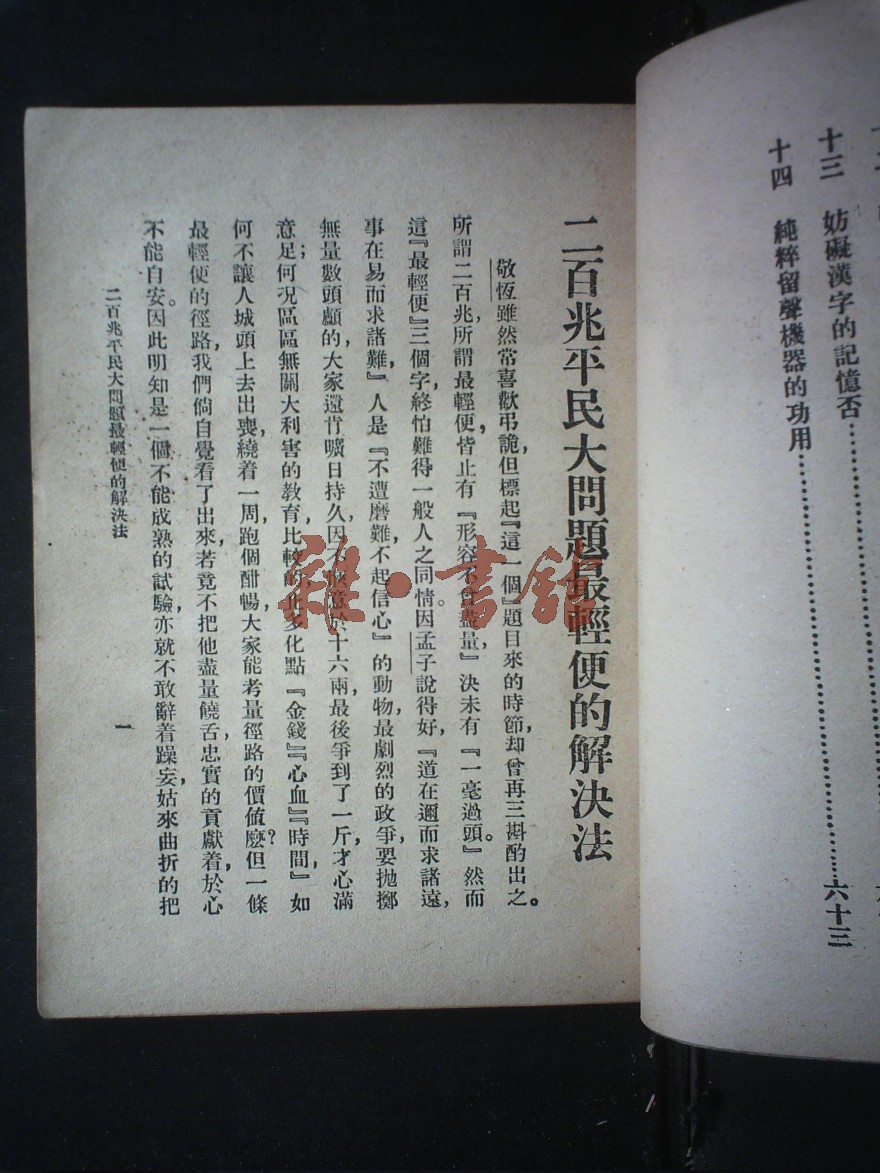 十三　妨礙漢字的記憶否……………………
十四　純粹留聲機器的功用……………………六十三
二百兆平民大問題最輕便的解決法
敬恆雖然常喜歡弔詭，但標起『這一個』題目來的時節，却曾再三斟酌出之。
所謂二百兆，所謂最輕便，皆止有『形容不曾盡量，』決未有『一毫過頭。』然而
這『最輕便』三個字，終怕難得一般人之同情。因孟子說得好，『道在邇而求諸遠，
事在易而求諸難，』人是『不遭磨難不起信心』的動物，最劇烈的政爭，要拋擲
無量數頭顱的，大家還肯曠日持久，因不愜意於十六兩，最後爭到了一斤，才心滿
意足；何况區區無關大利害的教育，比較的止多化點『金錢』『心血』『時間，』如
何不讓人城頭上去出喪，繞着一周，跑個酣暢，大家能考量徑路的價值麽？但一條
最輕便的徑路，我們倘自覺看了出來，若竟不把他盡量饒舌，忠實的貢獻着，於心
不能自安。因此明知是一個不能成熟的試驗，亦就不敢辭着躁妄，姑來曲折的把
二百兆平民大問題最輕便的解決法
一
雜·書館